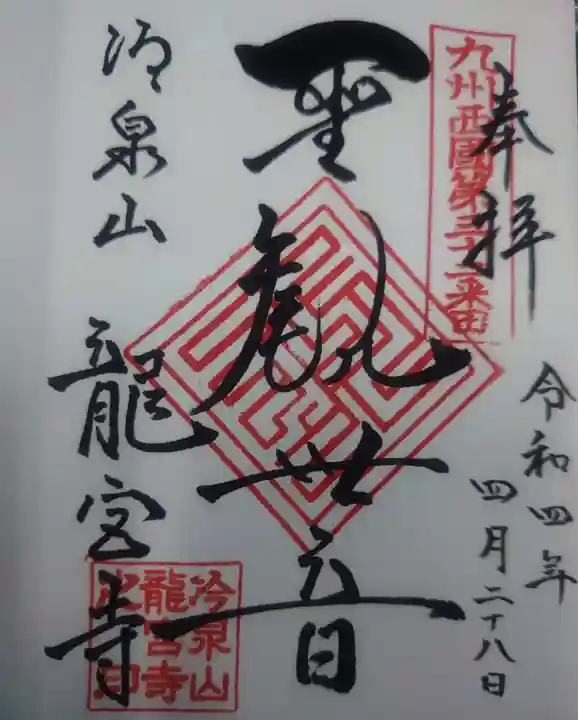 奉拝
九州西國第三十二来由
令和四年
四月二十八日
聖観世音
冷泉山
龍宮寺
冷泉山
龍宮寺
之印